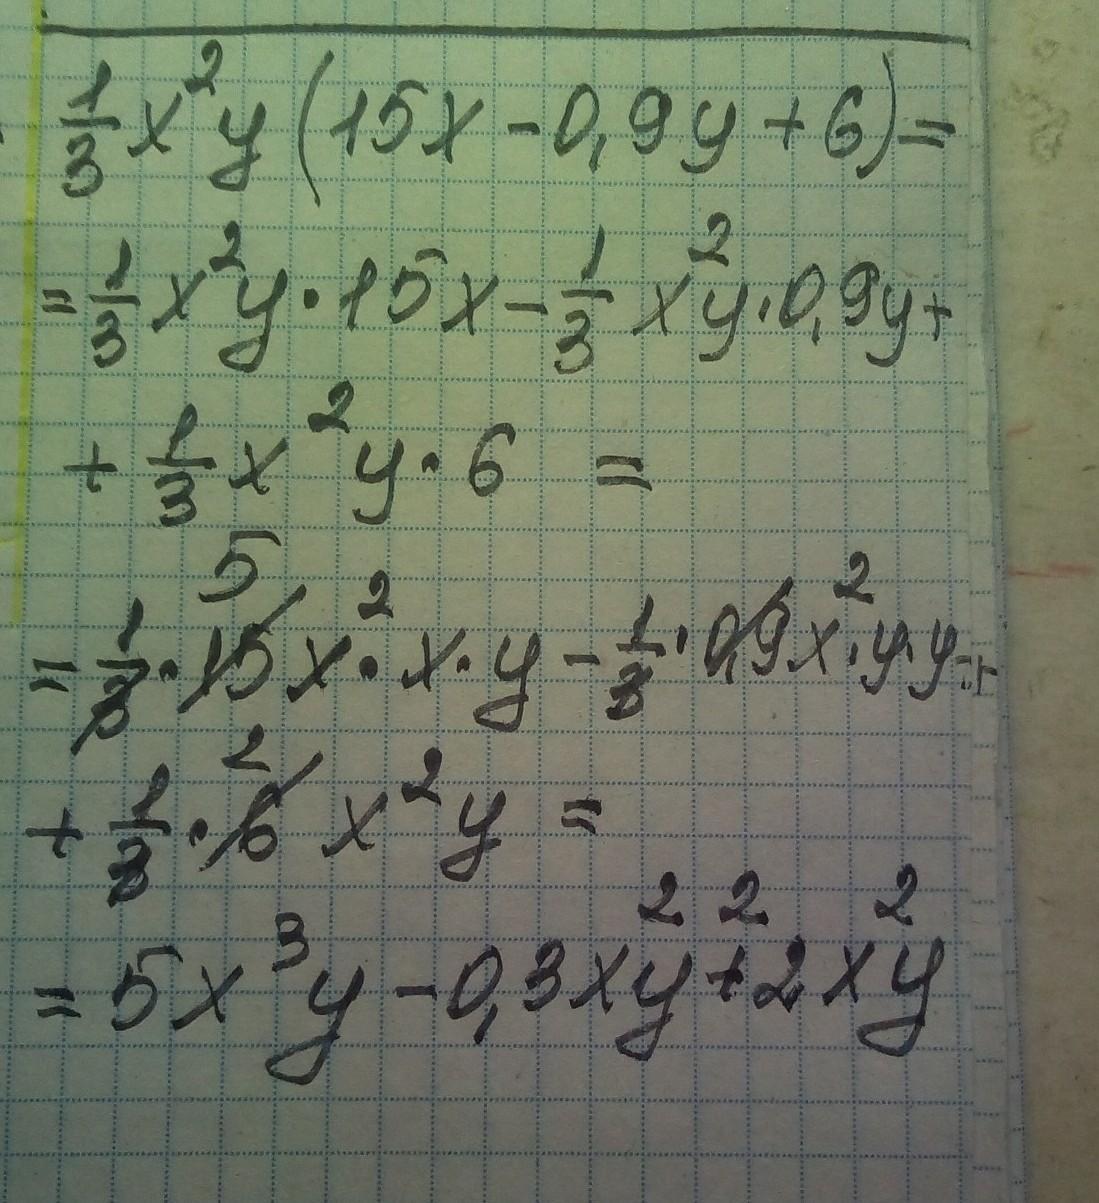 1/3 x²y (15x - 0,9y + 6) =
= 1/3 x²y · 15x - 1/3 x²y · 0,9y +
+ 1/3 x²y · 6 =
5
= 1/3 · 15x² · x · y - 1/3 · 0,9x² · y · y +
2
+ 1/3 · 6 x²y =
= 5x³y - 0,3x²y² + 2x²y